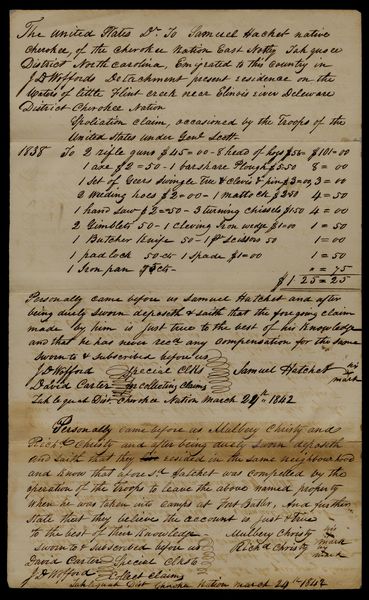 The United States Dr. To Samuel Hachet native
Cherokee, of the Cherokee Nation East Notly Tahquee
District North carolina, Emigrated to this Country in
J D Woffords Detachment present residence on the
Waters of little Flint creek near Elinois river Deleware
District Cherokee Nation
Spoliation claim, occasioned by the Troops of the
United States under Genl Scott
1838 To 2 rifle guns $45=00 - 8 head of hogs $56= $101=00
1 axe $2=50 - 1 barshare Plough $5.50 8=00
1 Set of Geers Swingle Tree & Clevis & pin $3=00, 3=00
2 Weeding hoes $2=00 - 1 mattock $2.50 4=50
1 hand Saw $2=50 - 3 turning chissels $1.50 4=00
2 Gimblets 50 - 1 Cleving Iron wedge $1=00 1=50
1 Butcher Knife 50 - 1 pr Scissors 50 1=00
1 pad lock 50 cts 1 Spade $1=00 1=50
1 Iron pan 75 cts - "=75
$125=25
Personally came before us Samuel Hatchet and after
being duely sworn deposeth & saith that the foregoing claim
made by him is just true to the best of his Knowledge
and that he has never recd any compensation for the same
sworn to & Subscribed before us
J D Wofford Special Clks Samuel Hatchet his x mark
David Carter for collecting claims
Tahlequah Dist. Cherokee Nation March 24th 1842
Personally came before us Mulbery Christy and
Richd Christy and after being duely sworn deposeth
and saith that they resided in the same neighbourhood
and know that afore sd Hatchet was compelled by the
operation of the Troops to leave the above named property
when he was taken into camps at Fort Butler, And further
State that they believe the account is just & true
to the best of their Knowledge Mulbery Christy his x mark
Sworn to & Subscribed before us Richd Christy his x mark
David Carter Special Clks to
J D Wofford Collect claims
Tahlequah Dist Cherokee Nation March 24th 1842